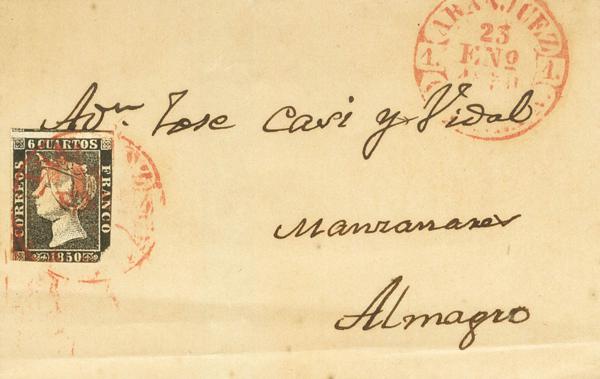 ARANJUEZ
23
ENº
1850
1. 1.
A Dn Jose Casi y Vidal
6 CUARTOS
CORREOS
FRANCO
1850
Manzanares
Almagro